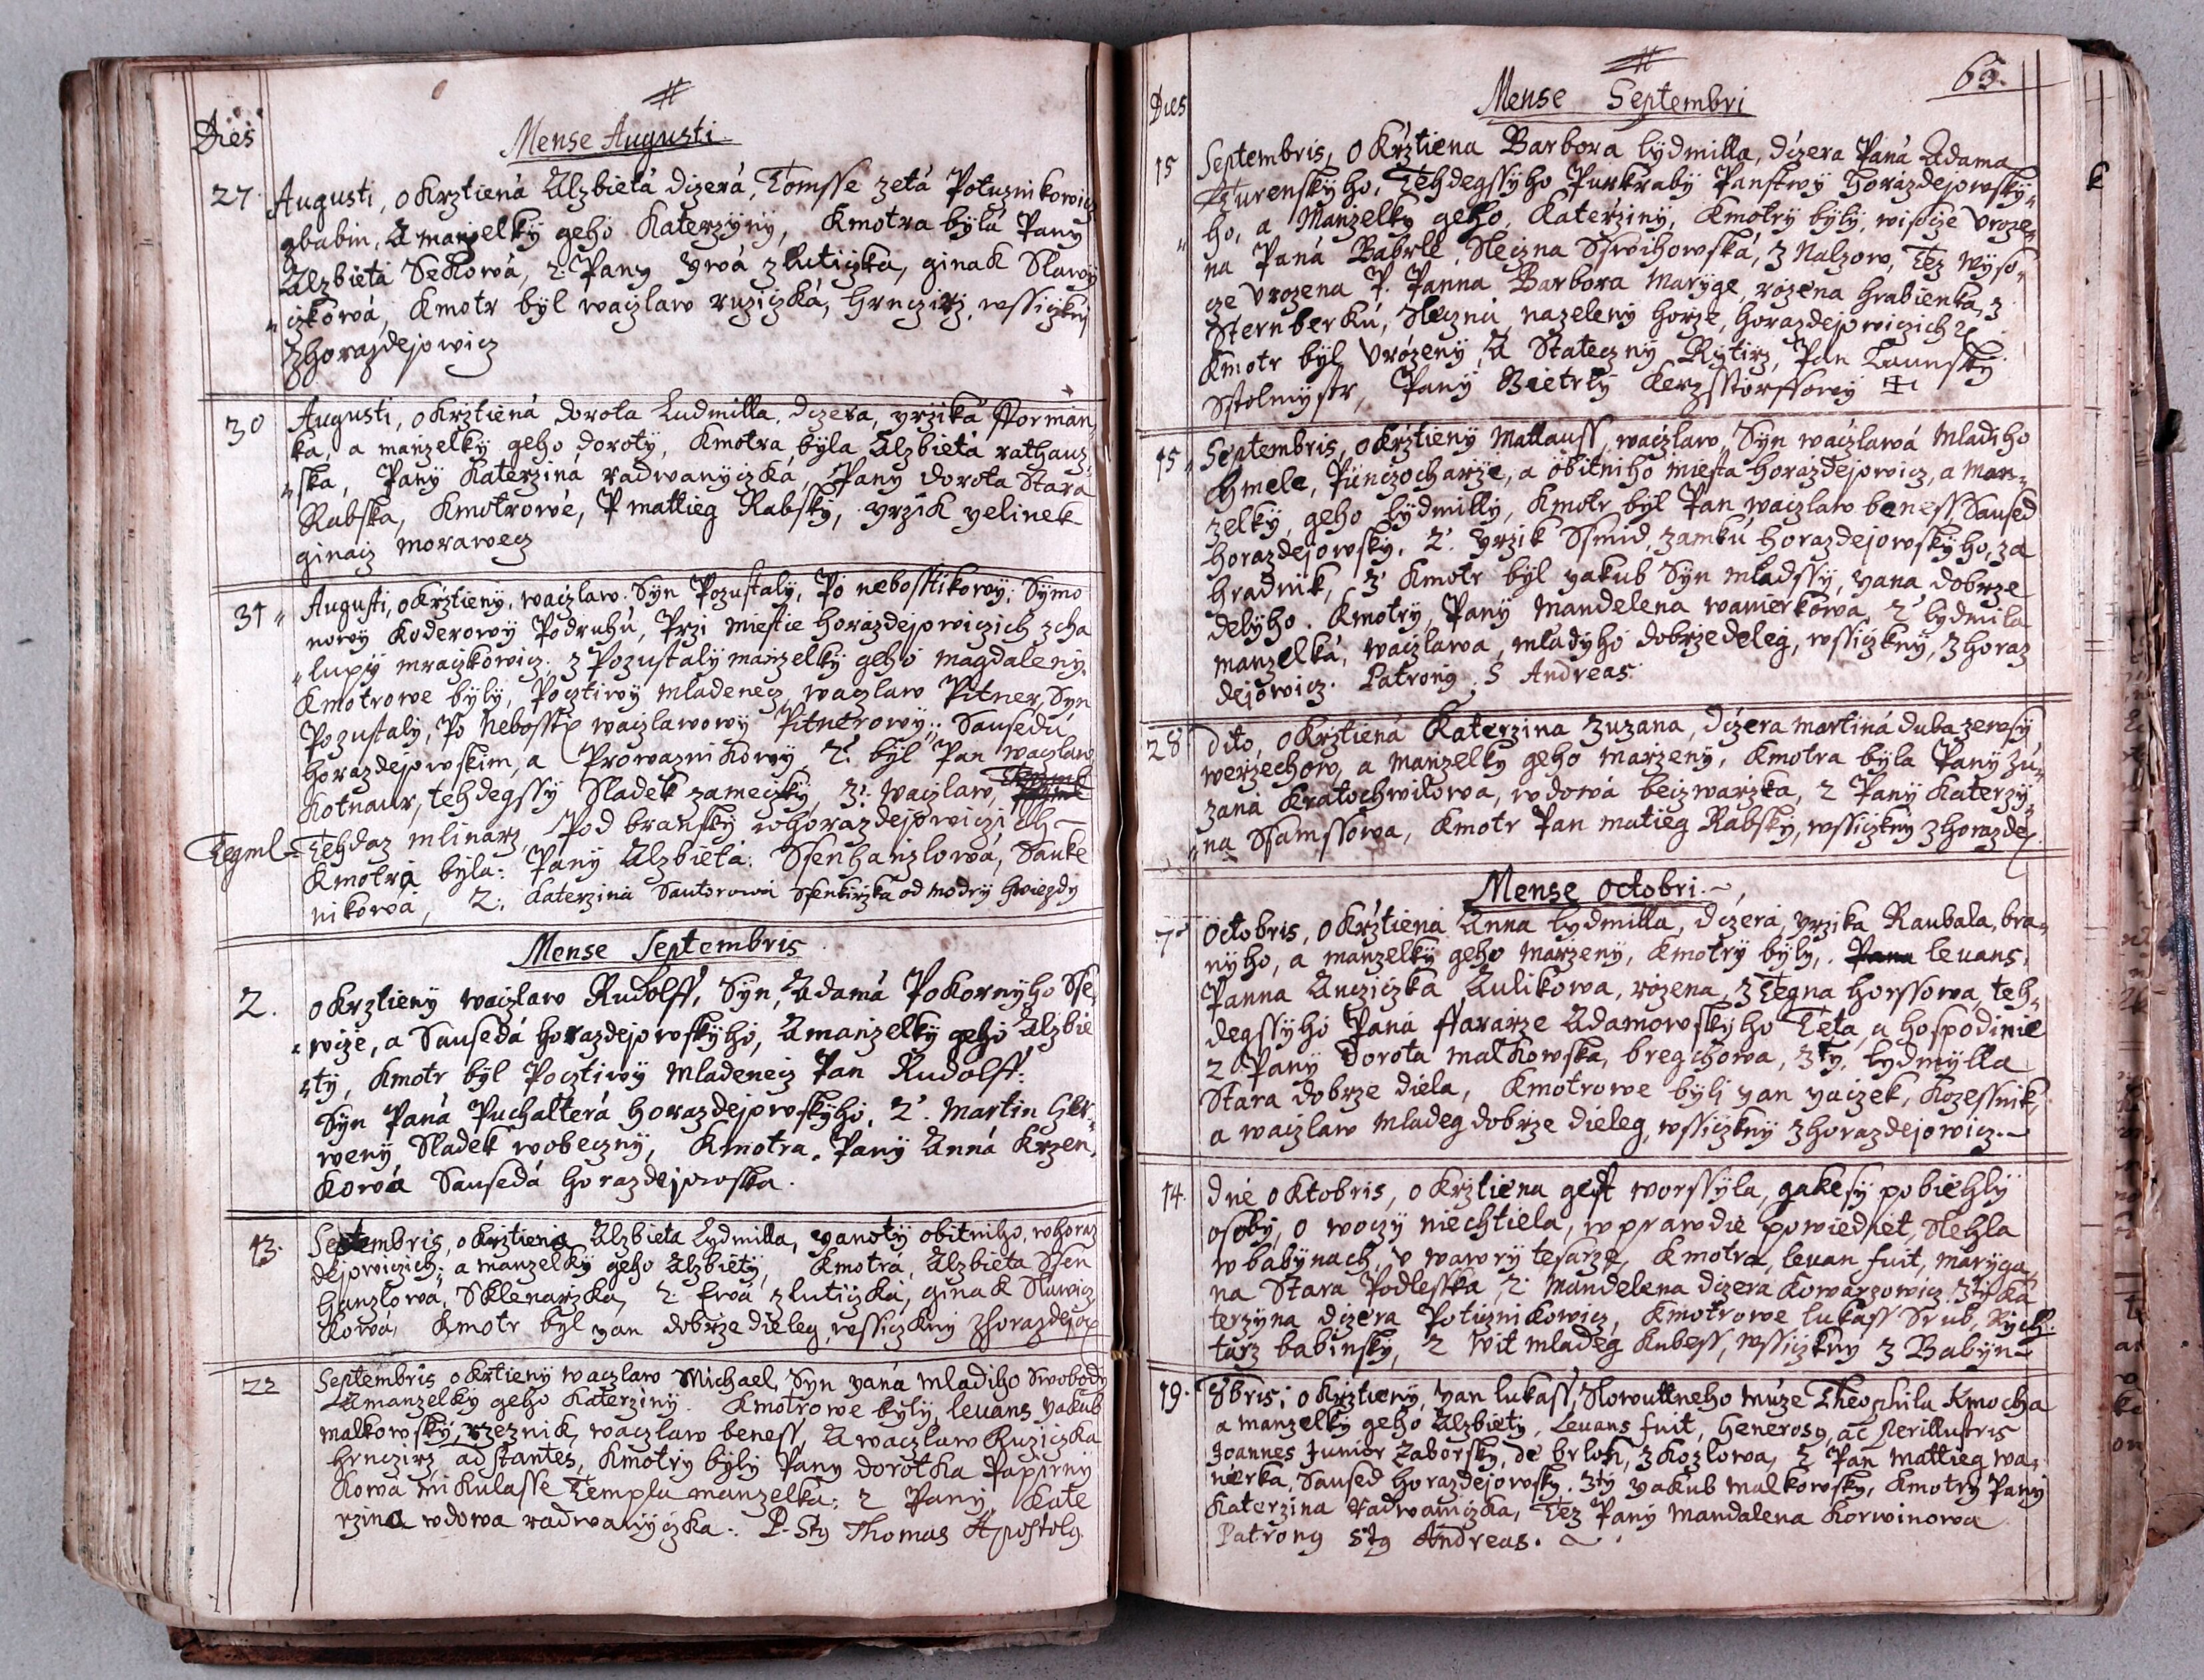 Dies
Mense Augusti
27. Augusti, okrztiená Alzbietá dczerá, Tomsse zetá Potuznikowicz
zbabin, A manzelky geho Katerzyny, Kmotra bylá Pany
Alzbieta Sekowá, 2. Pany Ywá zluticzka, ginak Slawy
czkowá, Kmotr byl waczlaw ruziczká, hrnczirz, wssiczkny
zhorazdejowicz
30 Augusti, okrztiená dorota Ludmilla dczera, yrziká fforman
ka, a manzelky geho doroty, Kmotra byla Alzbietá rathauz
ska, Pany Katerzina radwanyczka, Pany dorota Stará
Rabska, Kmotrowé, P mattieg Rabsky, yrzik yelinek
ginacz morawecz
31 Augusti, okrztieny, waczlaw Syn Pozustaly, Po nebosstikowy, Symo
nowy Koderowy Podruhu, Przi miestie horazdejowiczich zcha
lupy mraczkowicz. z Pozustaly manzelky geho magdaleny.
Kmotrowe byly, Pocztiwy mladenecz waczlaw Pitner, Syn
Pozustaly, Po Nebosstx waczlawowy Pitnerowy, Sausedu
horazdejowskim, a Prowaznikowy, 2. byl Pan waczlaw
Kotnaur, tehdegssy Sladek zameczky, 3. waczlaw,
Tegml Tehdaz mlinarz, Pod bransky whorazdejowiczich
Kmotra byla: Pany Alzbietá: Ssenhanzlowá, Sauke
nikowá, 2. Katerzina Santorowá Ssenkirzka od modry hwiezdy
Mense Septembris
2. okrztieny waczlaw Rudolff, Syn, Adamá Pokornyho Sse
wcze, a Sausedá horazdejowskyho, A manzelky geho Alzbie
ty, Kmotr byl Pocztiwy Mladenecz Pan Rudolff:
Syn Paná Puchalterá horazdejowskyho, 2. Martin Cer
weny Sladek wobeczny, Kmotra, Pany Anná Krzen
kowá Sausedá horazdejowska.
13. Septembris, okrztiena Alzbieta Lydmilla, yanoty obitniho, whoraz
dejowiczich, a manzelky geho Alzbiety, Kmotrá, Alzbieta Ssen
hanzlowá, Sklenarzka, 2. Ewá zluticzká, ginak Slawicz
kowá, Kmotr byl yan dobrze dieleg, wssiczkny zhorazdejox
22 Septembris okrtieny waczlaw Michael, Syn yaná mladiho Swobody
A manzelky geho Katerziny. Kmotrowe byly, levans yakub
malkowsky, rzeznik, waczlaw beness, A waczlaw Ruziczka
hrnczirz adstantes, Kmotry byly Pany dorotka Papirny
kowá mikulasse Templu manzelka: 2 Pany, Kate
rzina wdowa radwanyczka. P. Sty Thomas Apostolg
65.
Dies
Mense Septembri
15 Septembris, okrztiena Barbora lydmilla, dczera Paná Adama
Turenskyho, Tehdegssyho Purkraby Panstwy horazdejowsky
ho, a Manzelky geho, Katerziny, Kmotry byly, wisocze Uroze
na Paná Babrle, Sleczna Sswihowská, z Nalzow, Tez wyso
cze Urozena P. Panna Barbora Maryge, rozena hrabienka, z
Sternberku, Slecznú, nazeleny horze, horazdejowiczich
Kmotr byl Urozeny A Stateczny Rytirz, Pan Launsky
Sstolmystr, Pany Bietrly Kerzsstorffowy
15 Septembris, okrztieny Mattauss, waczlaw, Syn waczlawá Mladiho
Chmele, Punczocharze, a obitniho miesta horazdejowicz, a man
zelky, geho lydmilly, Kmotr byl Pan waczlaw beness Saused
horazdejowsky. 2. yrzik Ssmid, zamku horazdejowskyho, za
hradnik, 3 Kmotr byl yakub Syn mladssy, yana dobrze
delyho. Kmotry, Pany Mandelena wanierkowa, 2 lydmila
manzelká, waczlawa, mladyho dobrzedeleg, wssiczkny, zhoraz
dejowicz. Patrong. S Andreas.
28 dito, okrztiená Katerzina zuzana, dczera martiná duba zewsy
werzechow, a manzelky geho marzeny, Kmotra byla Pany zu
zana Kratochwilowa, wdowá beczwarzka, 2 Pany Katerzy
na Ssamssowa, Kmotr Pan matieg Rabsky, wssiczkny zhorazdex
Mense octobri.
7 octobris, okrztiená Anna lydmilla, dczerá, yrzika Raubala, bra
nyho, a manzelky geho marzeny, Kmotry byly, Pana levans,
Panna Ancziczka Aulikowa, rozena, z Tegna horssowa, teh
degssyho Paná ffararze Adamowskyho Teta, a hospodinie
2 Pany dorota malkowska, bregchowa, 3ty, lydmylla
Stara dobrze diela, Kmotrowe byli yan yaczek, Kozessnik,
a waczlaw mladeg dobrze dieleg, wssiczkny zhorazdejowicz.
14. dne oktobris, okrztiena gest worssyla, gakesy pobiehly
osoby, o woczy niechtiela, wprawdie powiedniet, Slehla
wbabynach, u wawry tesarze, Kmotra, levan fuit, maryga
na Stara Podlesska, 2. Mandelena dczera Kowarzowicz 3ty Ka
terzyna dczera Potuznikowicz, Kmotrowe lukass Srub, Rych
tarz babinsky, 2 Wit mladeg Kubess, wssiczkny z Babyn
19. 8bris; okrztieny, yan lukass, Slowuttneho muze Theophila Kmocha
a manzelky geho Alzbiety, Levans fuit, Generosg, ac Perillustris
Joannes Junior Zaborsky, de brloh, z Kozlowa, 2 Pan mattieg wa
nerka, Saused horazdejowsky. 3ty yakub malkowsky, Kmotry Pany
Katerzina radwaniczka, Tez Pany mandalena Korwinowa
Patrong Stg Andreas.